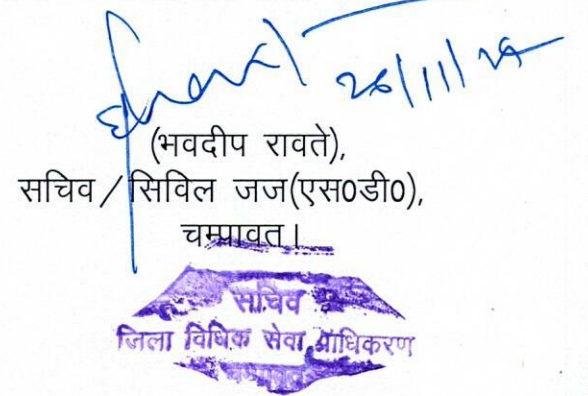 26/11/25
(भवदीप रावते),
सचिव/सिविल जज(एस0डी0),
चम्पावत।
सचिव
जिला विधिक सेवा प्राधिकरण
चम्पावत